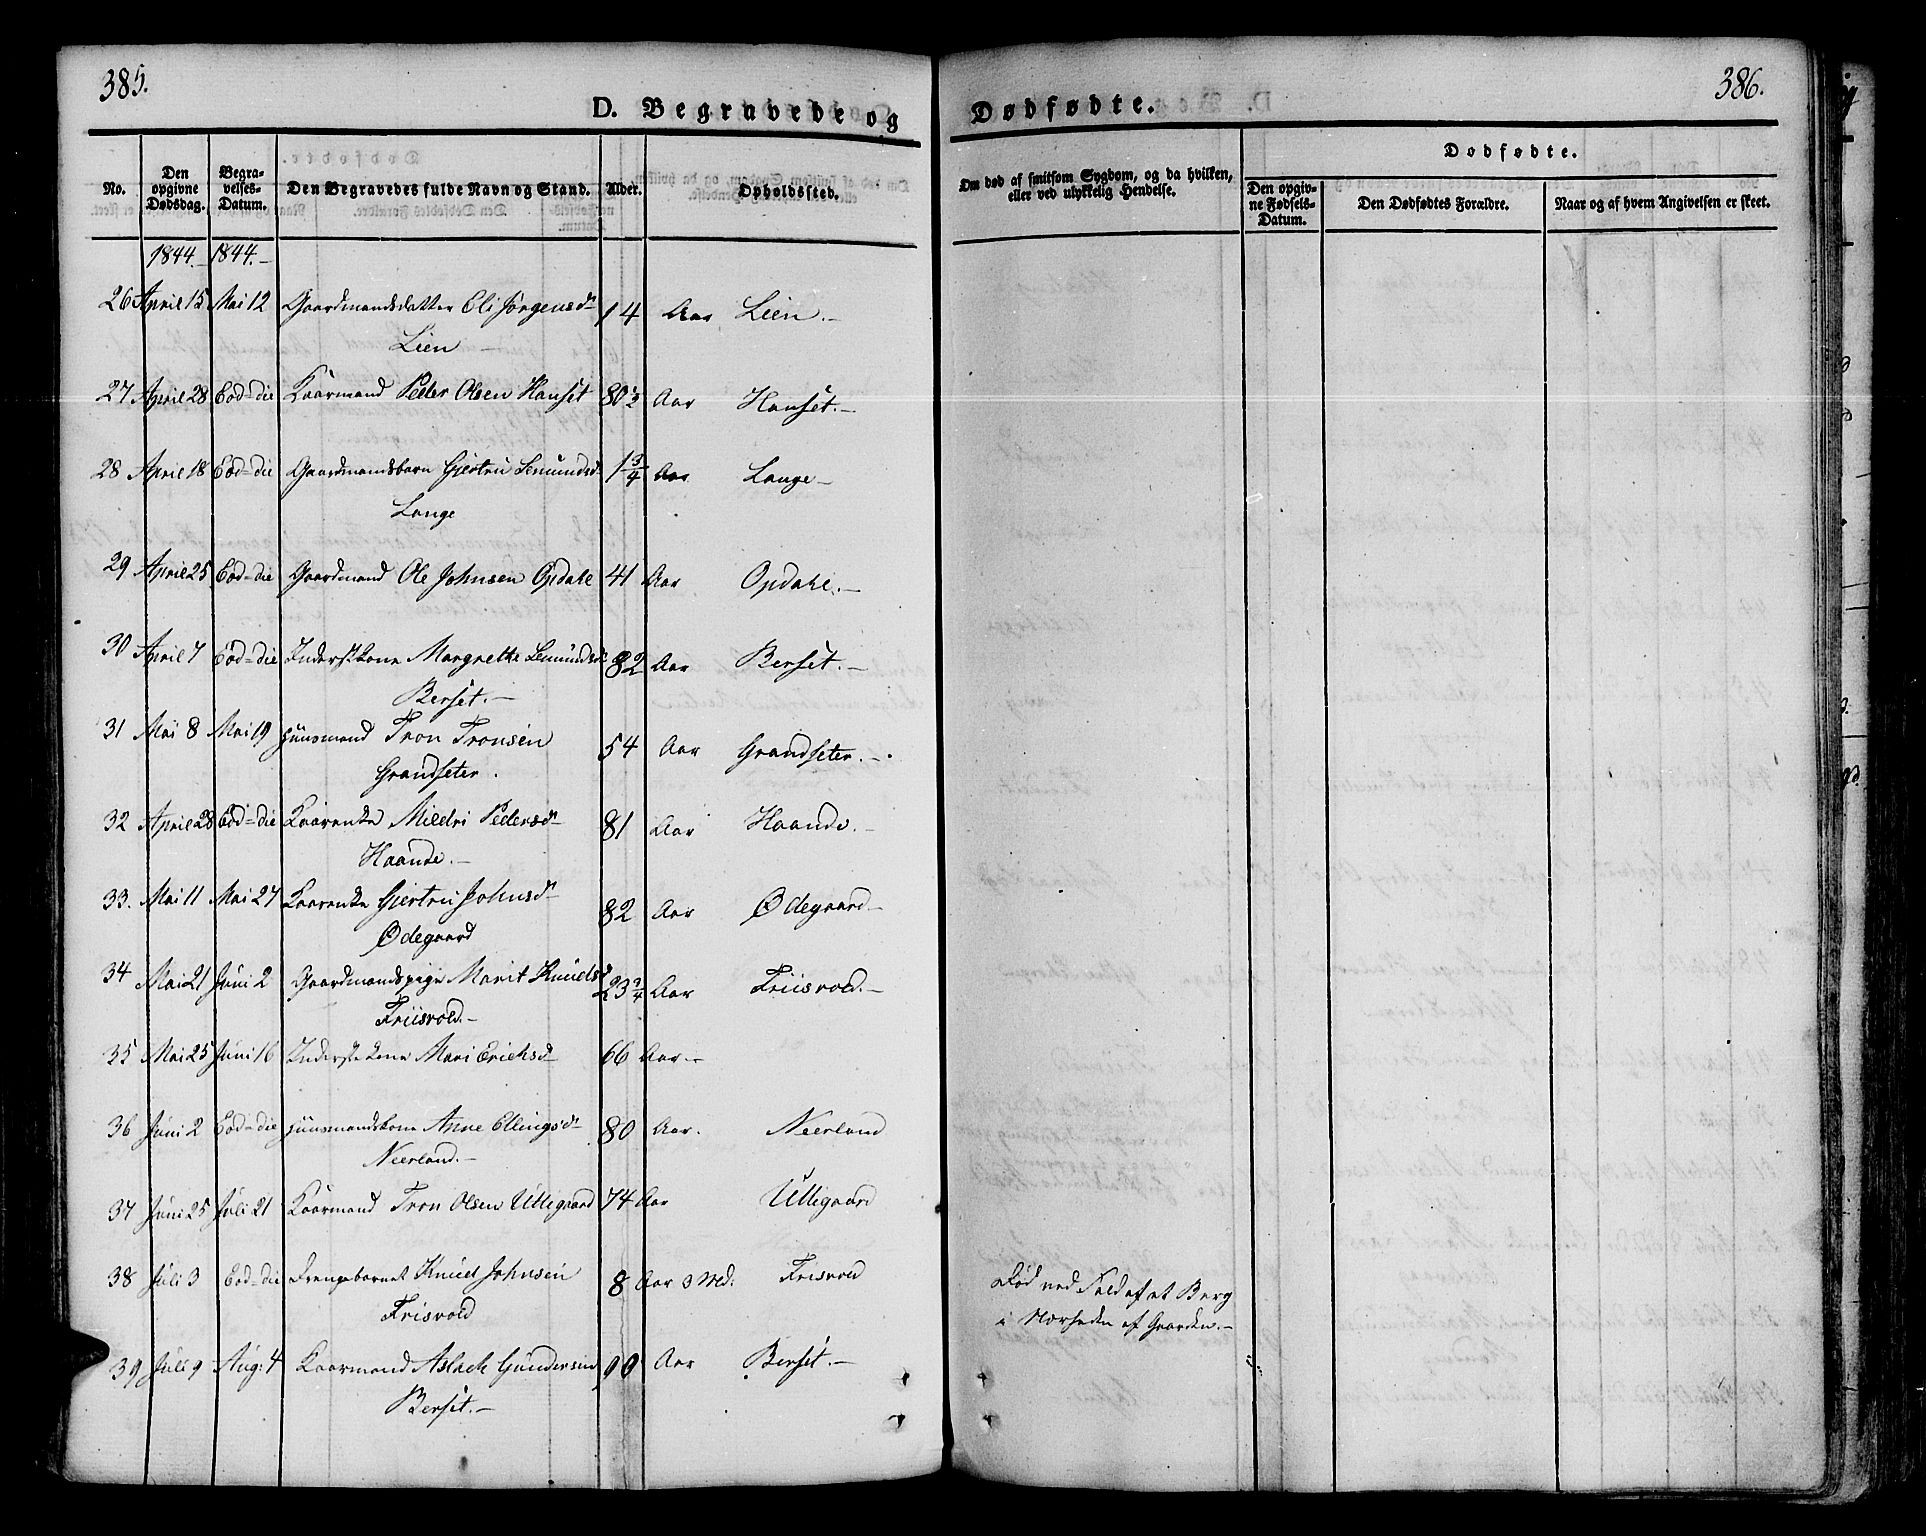 385.
D. Begravede og
No.
Den opgivne Dødsdag.
Begravelses-Datum.
Den Begravedes fulde Navn og Stand.
Alder.
Opholdssted.
1844.- 1844.-
26 April 15 Mai 12 Gaardmandsdatter Eli Jørgensd. 14 Aar Lien.-
Lien -
27 April 28 Eod=die Kaarmand Peder Olsen Hanset 80½ Aar Hanset.-
28 April 18 Eod=die Gaardmandsbarn Gjertru Semundsd. 1¾ Aar Lange-
Lange
29 April 25 Eod=die Gaardmand Ole Johnsen Opdahl 41 Aar Opdahl.-
30 April 7 Eod=die Inderstkone Margrethe Semundsd. 82 Aar Berset.-
Berset.-
31 Mai 8 Mai 19 Huusmand Tron Tronsen 54 Aar Grandseter.-
Grandseter.
32 April 28 Eod=die Kaarenke Mildri Pedersd. 81 Aar Haande.-
Haande.-
33. Mai 11 Mai 27 Kaarenke Gjertru Johnsd. 82 Aar Ødegaard.-
Ødegaard
34 Mai 21 Juni 2 Gaardmandspige Marit Knudsd. 23¾ Aar Friisvold.-
Friisvold.-
35 Mai 25 Juni 16 Inderstkone Mari Erichsd. 66 Aar.-
36 Juni 2 Eod=die Huusmandskone Anne Ellingsd. 80 Aar. Neerland
Neerland.-
37 Juni 25 Juli 21 Kaarmand Tron Olsen Utligaard 74 Aar Utligaard
38 Juli 3 Eod=die Drengebarnet Knud Johnsen 8 Aar 3 Md: Frisvold
Frisvold
39 Juli 9 Aug: 4 Kaarmand Aslack Gundersen 90 Aar Berset.-
Berset.-
386.
Dødfødte.
Om død af smitsom Sygdom, og da hvilken, eller ved ulykkelig Hendelse.
Dødfødte.
Den opgivne Fødsels-Datum.
Den Dødfødtes Forældre.
Naar og af hvem Angivelsen er skeet.
Død ved Fald af et Berg
i Nærheden af Gaarden.-